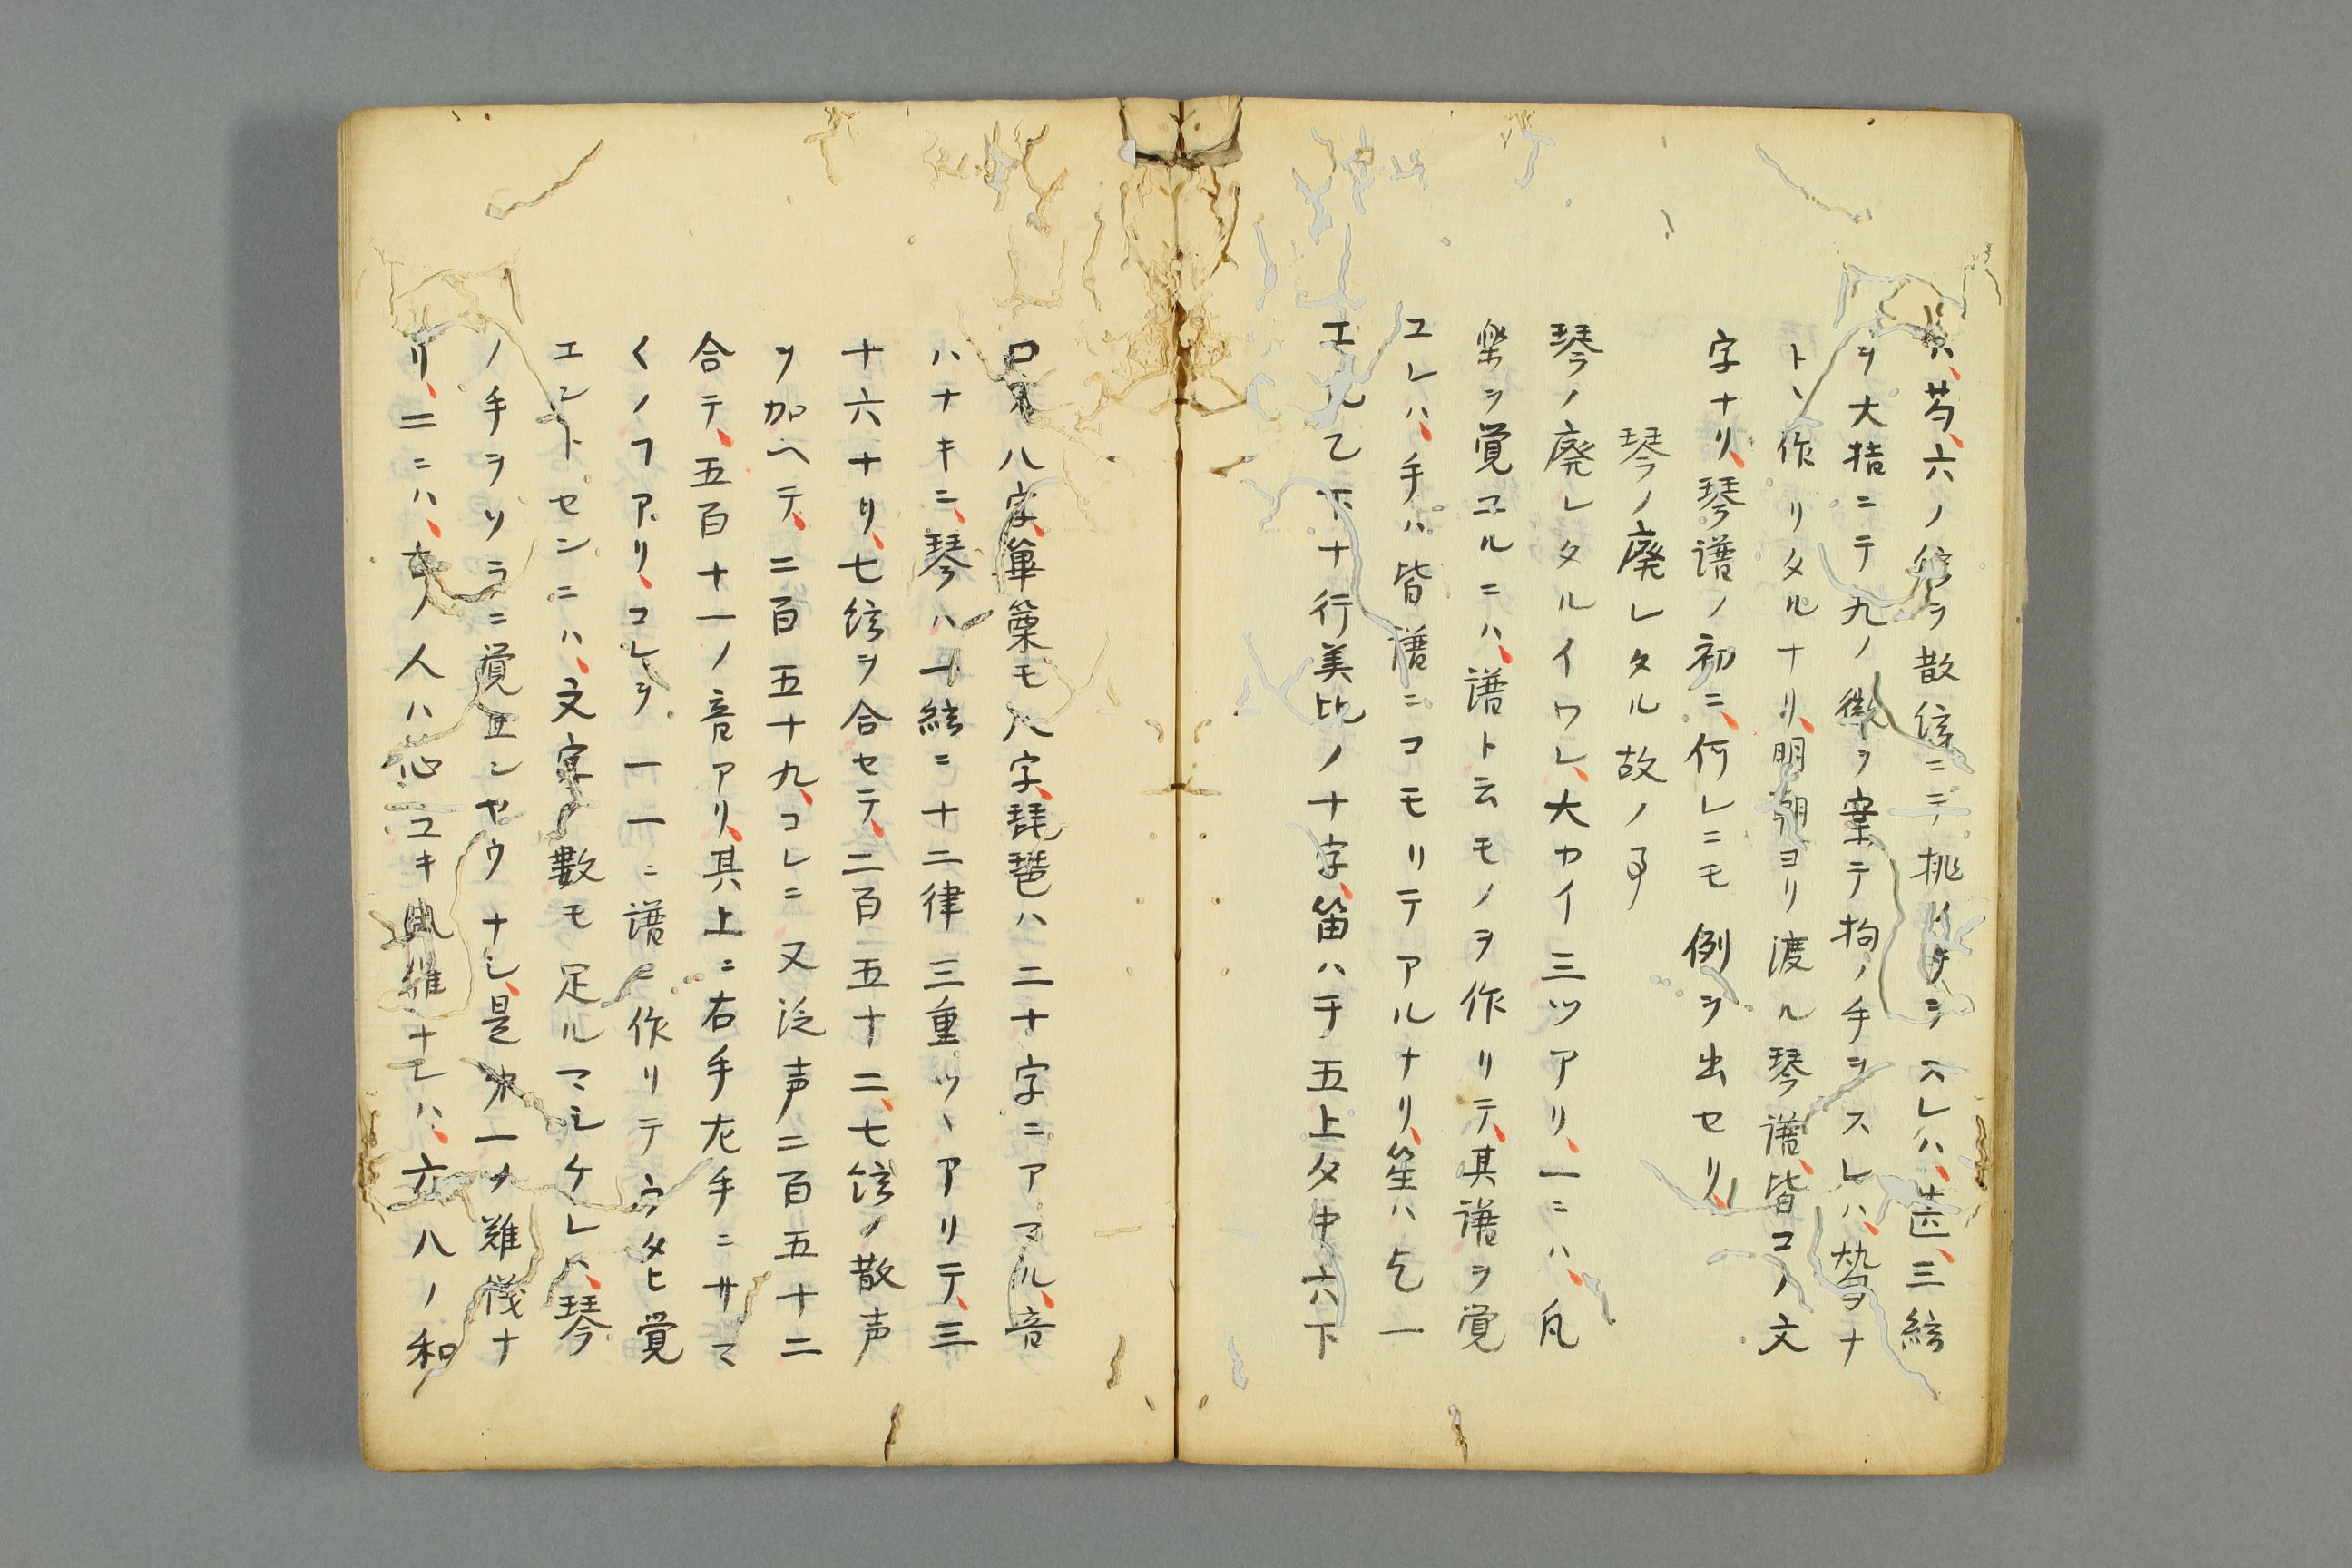 ハ、芶、六ノ絃ヲ散絃ニテ挑ノ手ヲスレハ、𦮙、三絃
ヲ大指ニテ九ノ徽ヲ案テ拘ノ手ヲスレハ、ナ
トヽ作リタルナリ、明朝ヨリ渡ル琴譜、皆コノ文
字ナリ、琴譜ノ初ニ、何レニモ例ヲ出セリ、
琴ノ廃レタル故ノ事
琴ノ廃レタルイワレ、大カイ三ツアリ、一ニハ、凡
楽ヲ覚ユルニハ、譜ト云モノヲ作リテ、其譜ヲ覚
ユレハ、手ハ皆譜ニコモリテアルナリ、笙ハ乞一
工凢乙下十行美比ノ十字、笛ハ干五上夕中六下
口〻八字、篳篥モ八字、琵琶ハ二十字ニアマル、音
ハナキニ、琴ハ一絃ニ十二律三重ツヽアリテ、三
十六ナリ、七絃ヲ合セテ、二百五十二、七絃ノ散声
ヲ加ヘテ、二百五十九、コレニ又泛声二百五十二
合テ、五百十一ノ音アリ、其上ニ右手左手ニサマ
〱ノヿアリ、コレヲ一一ニ譜ニ作リテウタヒ覚
エントセンニハ、文字ノ數モ足ルマシケレハ、琴
ノ手ヲソラニ覚エンヤウナシ、是第一ノ難儀ナ
リ、二ニハ、夫ノ人ハ心ユキ興維ナモハ、六八ノ和